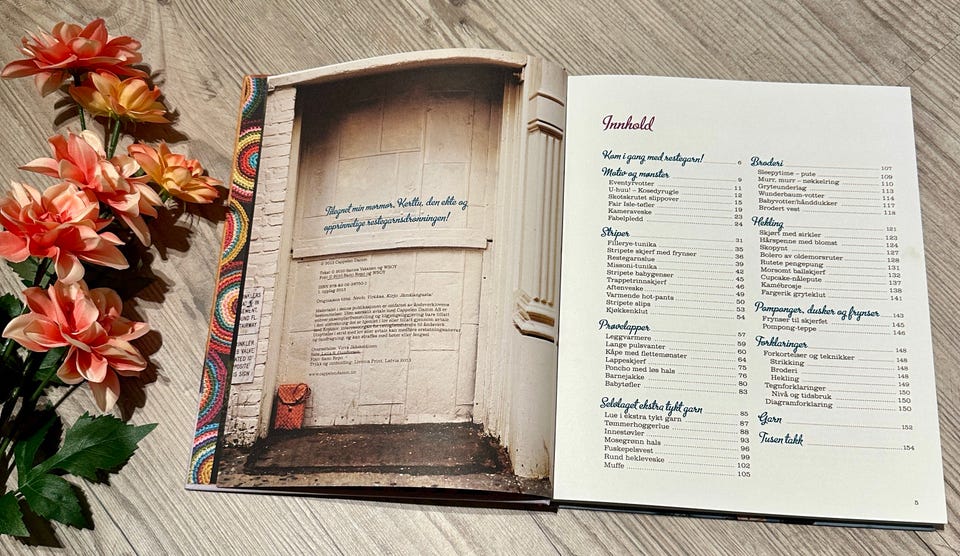 Tilegnet min mormor, Kerttu, den ekte og
opprinnelige restegarnsdronningen!
© 2013 Cappelen Damm
1. opplag 2013
Trykk og innbinding: Livonia Print, Latvia 2013
www.cappelendamm.no
Innhold
Kom i gang med restegarn! 6
Motiv og mønster 9
Eventyrvotter 11
U-huu! – Kosedyrugle 12
Skotskrutet slippover 15
Fair Isle-tøfler 19
Kameraveske 23
Fabelpledd 24
Striper 31
Fillerye-tunika 35
Stripete skjerf med frynser 36
Restegarnslue 39
Missoni-tunika 42
Stripete babygenser 45
Trappetrinnskjerf 46
Aftenveske 49
Varmende hot-pants 50
Stripete slips 53
Kjøkkenklut 54
Prøvelapper 57
Leggvarmere 59
Lange pulsvanter 60
Kåpe med flettemønster 64
Lappeskjerf 75
Poncho med løs hals 76
Barnejakke 80
Babytøfler 83
Selvlaget ekstra tykt garn 85
Lue i ekstra tykt garn 87
Tømmerhoggerlue 88
Innestøvler 93
Mosegrønn hals 96
Fuskepelsvest 99
Rund hekleveske 102
Muffe 105
Broderi 107
Sleepytime – pute 109
Murr, murr – nøkkelring 110
Gryteunderlag 113
Wunderbaum-votter 114
Babyvotter/hånddukker 117
Brodert vest 118
Hekling 121
Skjørt med sirkler 123
Hårspenne med blomst 124
Skopynt 127
Bolero av oldemorsruter 128
Rutete pengepung 131
Morsomt ballskjerf 132
Cupcake-nålepute 137
Kamébrosje 138
Fargerik gryteklut 141
Pomponger, dusker og frynser 143
Frynser til skjerfet 145
Pompong-teppe 146
Forklaringer 148
Forkortelser og teknikker 148
Strikking 148
Broderi 148
Hekling 149
Tegnforklaringer 150
Nivå og tidsbruk 150
Diagramforklaring 150
Garn 152
Tusen takk 154
5